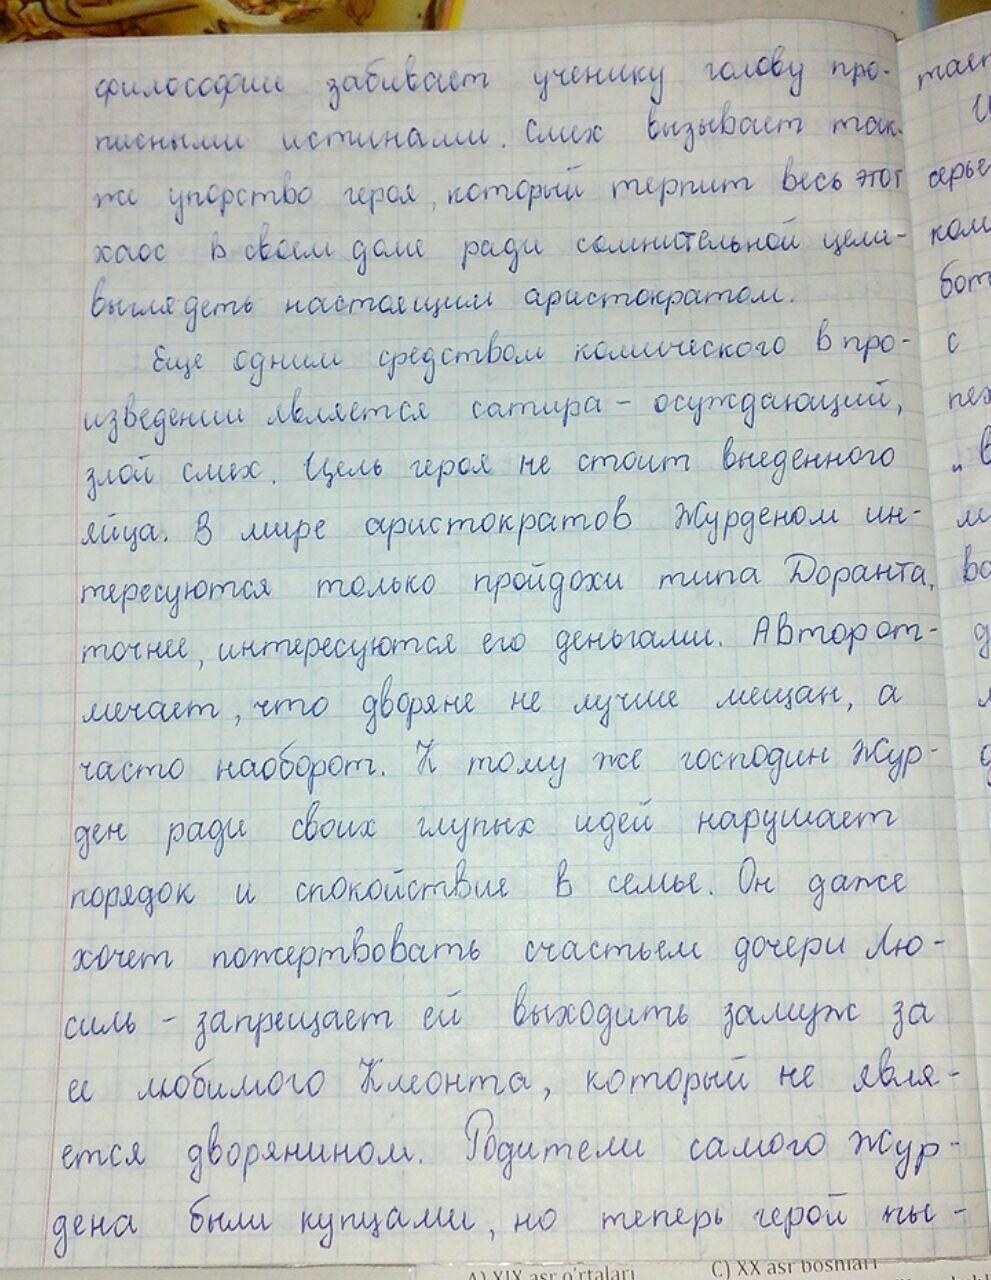 философии забивает ученику голову про-
писными истинами. Смех вызывает так-
же упорство героя, который терпит весь этот
хаос в своем доме ради сомнительной цели-
выглядеть настоящим аристократом.
Еще одним средством комического в про-
изведении является сатира - осуждающий,
злой смех. Цель героя не стоит выеденного
яйца. В мире аристократов Журденом ин-
тересуются только пройдохи типа Доранта,
точнее, интересуются его деньгами. Автор от-
мечает, что дворяне не лучше мещан, а
часто наоборот. К тому же господин Жур-
ден ради своих глупых идей нарушает
порядок и спокойствие в семье. Он даже
хочет пожертвовать счастьем дочери Лю-
силь - запрещает ей выходить замуж за
ее любимого Клеонта, который не явля-
ется дворянином. Родители самого Жур-
дена были купцами, но теперь герой пы-
тает
серье
ком
бот
с
пех
„в
м
во
д
A) XIX asr o'rtalari
C) XX asr boshlari